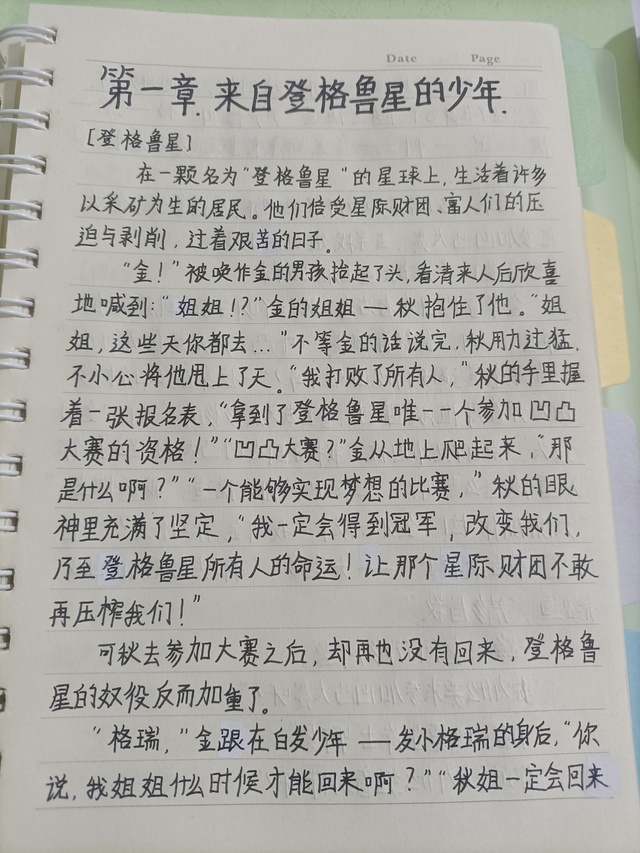 Date Page
第一章. 来自登格鲁星的少年.
[登格鲁星]
在一颗名为"登格鲁星"的星球上,生活着许多
以采矿为生的居民。他们倍受星际财团、富人们的压
迫与剥削,过着艰苦的日子。
"金!"被唤作金的男孩抬起了头,看清来人后欣喜
地喊到:"姐姐!?"金的姐姐—秋抱住了他。"姐
姐,这些天你都去..."不等金的话说完,秋用力过猛,
不小心将他甩上了天。"我打败了所有人,"秋的手里握
着一张报名表,"拿到了登格鲁星唯一一个参加凹凸
大赛的资格!""凹凸大赛?"金从地上爬起来,"那
是什么啊?""一个能够实现梦想的比赛,"秋的眼
神里充满了坚定,"我一定会得到冠军,改变我们,
乃至登格鲁星所有人的命运!让那个星际财团不敢
再压榨我们!"
可秋去参加大赛之后,却再也没有回来,登格鲁
星的奴役反而加重了。
"格瑞,"金跟在白发少年—发小格瑞的身后,"你
说,我姐姐什么时候才能回来啊?""秋姐一定会回来